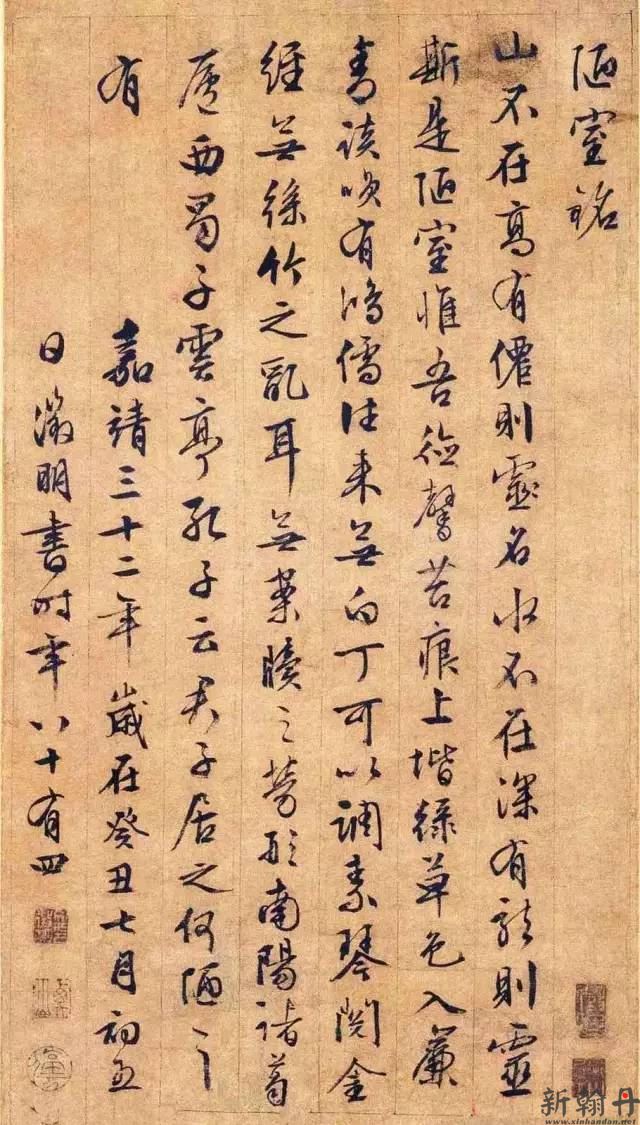 陋室銘
山不在高有僊則靈名水不在深有龍則靈
斯是陋室惟吾德馨苔痕上堦綠草色入簾
青談咲有鴻儒往来無白丁可以調素琴閱金
經無絲竹之亂耳無案牘之勞形南陽諸葛
廬西蜀子雲亭孔子云君子居之何陋之
有
嘉靖三十二年歲在癸丑七月初五
日徵明書時年八十有四
新翰丹
www.xinhandan.net